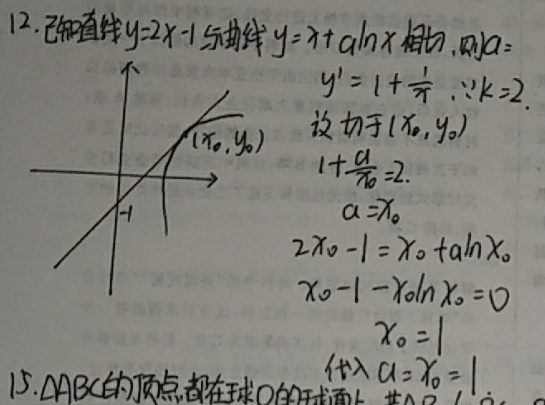 12.已知直线y=2x-1与曲线y=x+alnx相切,则a=
y'=1+\frac{1}{x} ∵k=2.
设切于(x₀,y₀)
1+\frac{a}{x₀}=2.
a=x₀
2x₀-1=x₀+alnx₀
x₀-1-x₀lnx₀=0
x₀=1
代入a=x₀=1
(x₀,y₀)
-1
15.△ABC的顶点都在球O的球面上,